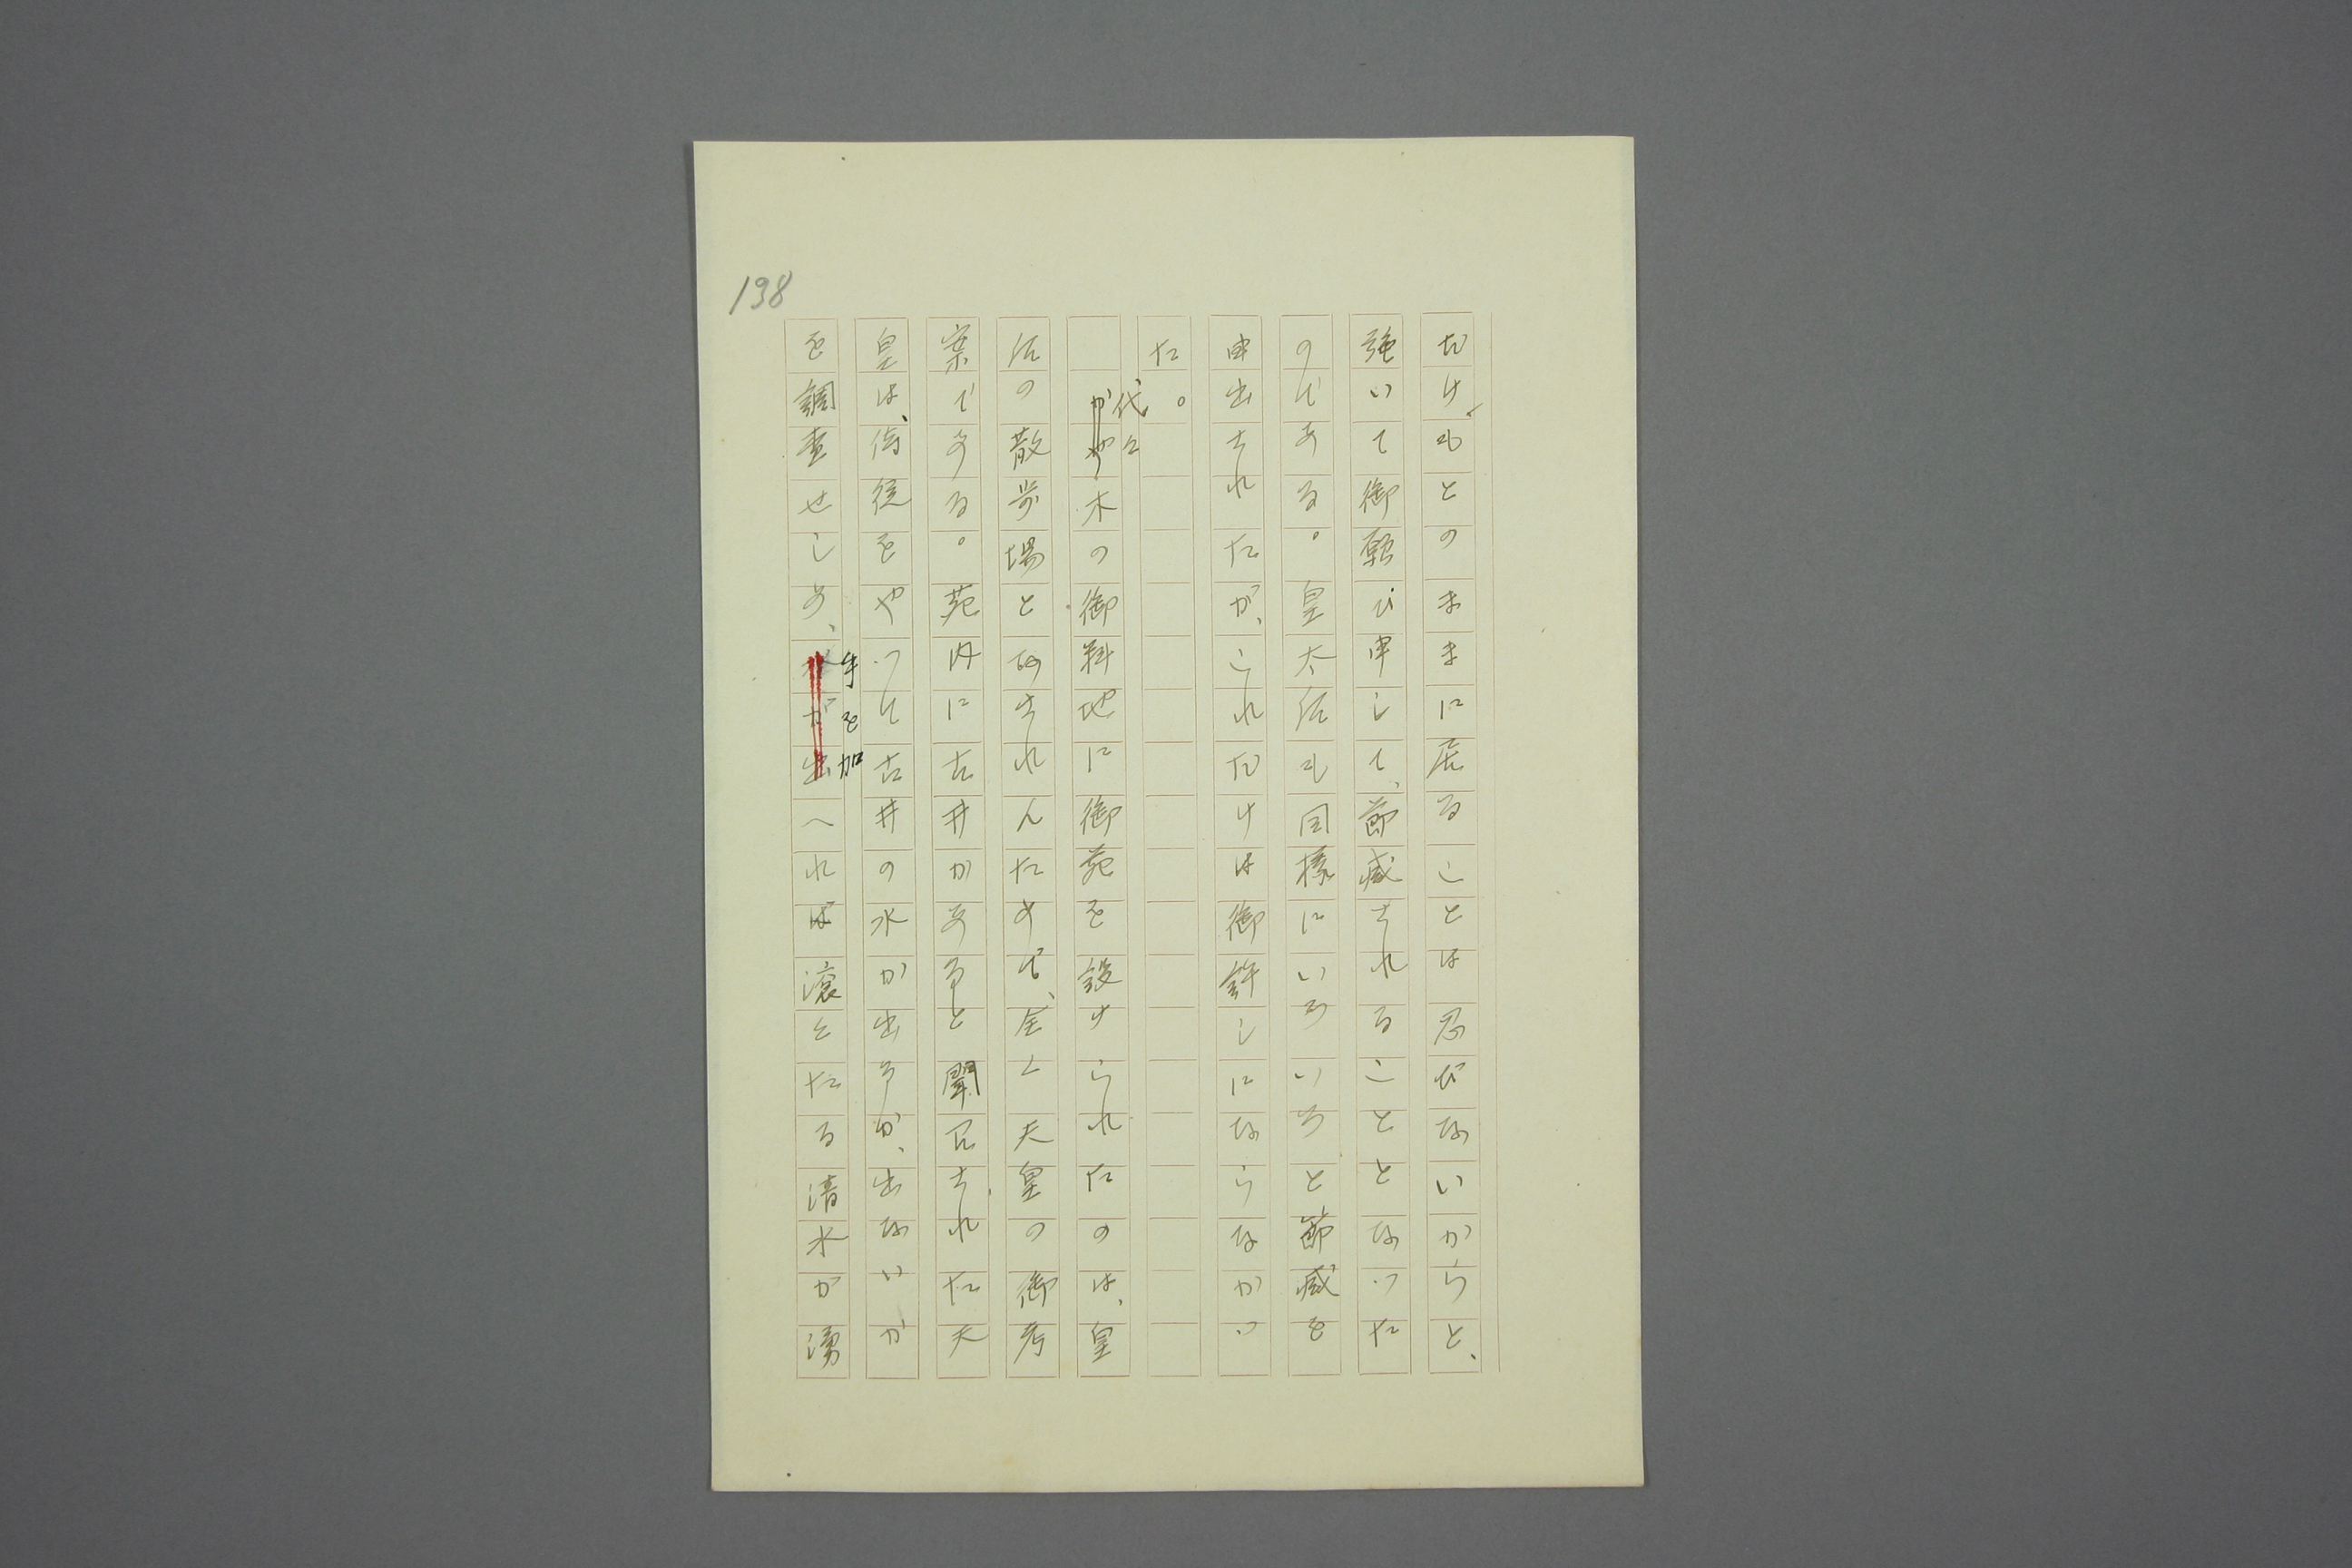 198
だけ、もとのままに居ることは忍びないからと、
強いて御願ひ申して、節減されることとなつた
のである。皇太后も同様にいろいろと節減を
申出られたが、これだけは御許しにならなかつ
た。
代々木の御料地に御苑を設けられたのは、皇
后の散歩場となされんためで、全く天皇の御考
案である。苑内に古井があると聞召された天
皇は、侍従をやつて古井の水が出るか、出ないか
を調査せしめ、手を加へれば滾々たる清水が湧